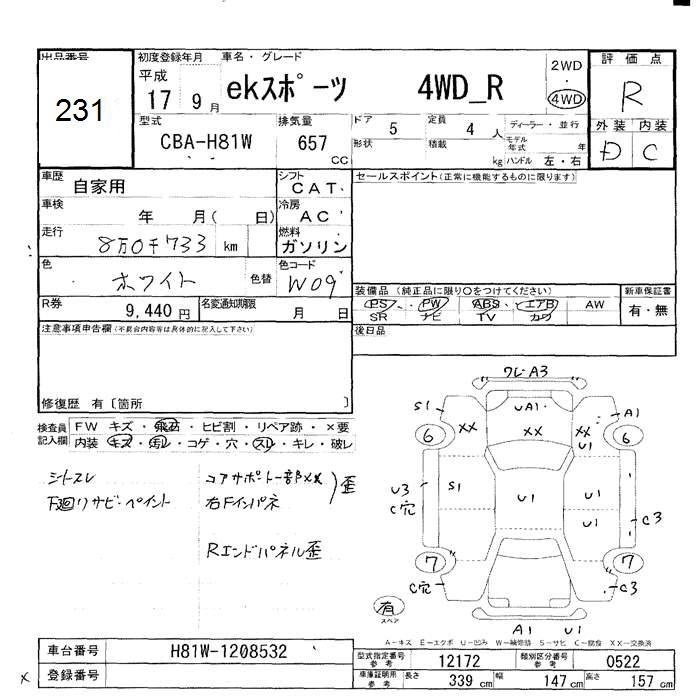 出品番号 初度登録年月 車名・グレード 評価点
231
平成 17 9月 ekスポーツ 4WD_R 2WD 4WD R
型式 CBA-H81W 排気量 657 CC ドア 5 定員 4人 ディーラー・並行
形状 積載 kg モデル年式 年 ハンドル 左・右
外装 内装
D C
車歴 自家用 シフト CAT
セールスポイント(正常に機能するものに限ります)
車検 年 月( 日) 冷房 AC
走行 8万0千733 km 燃料 ガソリン
色 ホワイト 色替 色コード W09
装備品(純正品に限り○をつけてください) 新車保証書
PS PW ABS エアB AW 有・無
SR ナビ TV カワ
R券 9,440円 名変通知期限 月 日
後日品
注意事項申告欄(不具合内容等は具体的に記入して下さい)
修復歴 有〔箇所 〕
検査員記入欄 FW キズ・飛石・ヒビ割・リペア跡・×要
内装・キズ・汚レ・コゲ・穴・スレ・キレ・破レ
シートスレ
下廻りサビ・ペイント
コアサポート一部XX 歪
右Fインパネ
Rエンドパネル歪
ワレ・A3
S1 UA1 A1
6 XX XX XX 6
U1
U3 S1 U1 U1
C穴 C3
7 7
C穴 C3
有 スペア
A1 U1
A-キズ E-エクボ U-凹み W-補修跡 S-サビ C-腐食 XX-交換済
車台番号 H81W-1208532
型式指定番号 参考 12172 類別区分番号 参考 0522
登録番号
車庫証明用 参考 長さ 339 cm 幅 147 cm 高さ 157 cm